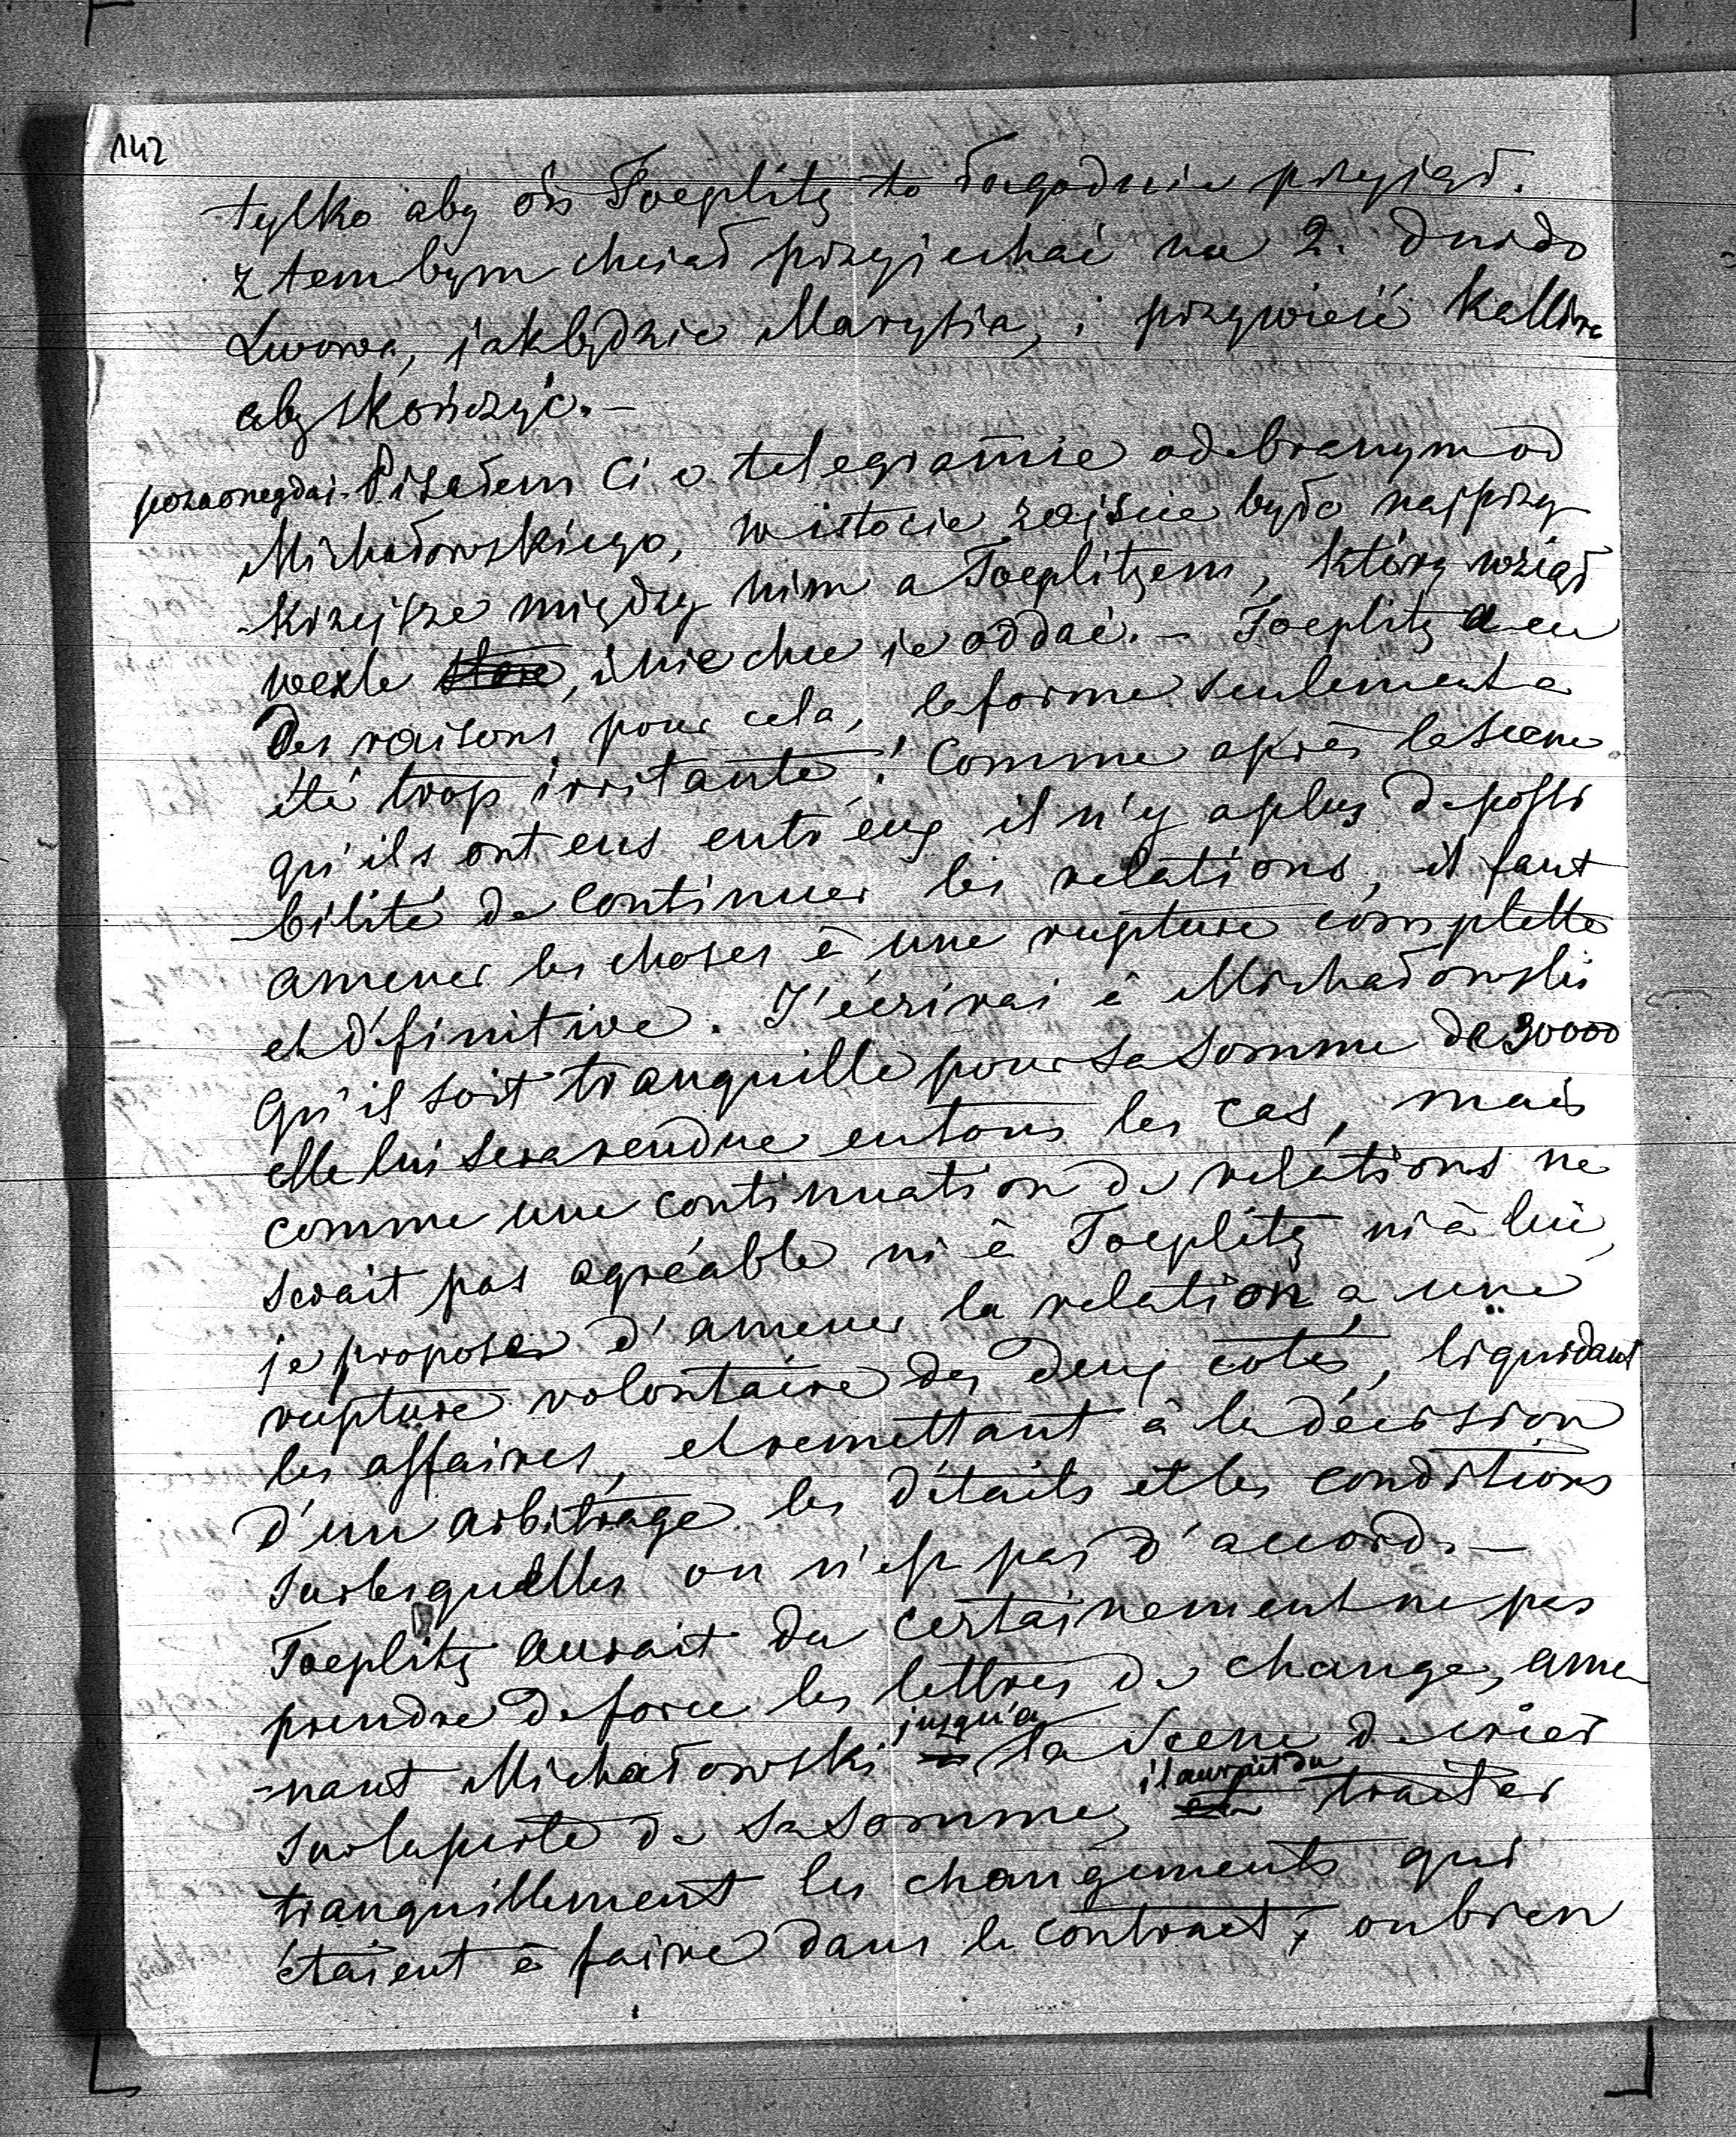 142
tylko aby on Toeplitz to łagodnie przyjął.
z tem bym chciał przyjechać na 2. dni do
Lwowa, jak będzie Marysia, i przywieść
aby skończyć. –
pozaonegdaj Pisałem Ci o telegramie odebranym od
Michałowskiego, w istocie zajście było najprzy-
-krzejsze między nim a Toeplitzem, który wziął
wexle, i nie chce je oddać. – Toeplitz a eu
des raisons pour cela, la forme seulement a
été trop irritante! Comme après la scene
qu'ils ont eus entr'eux il n'y a plus de possi
-bilité de continuer les relations, il faut
amener les choses à une rupture complette
et définitive. J'écrirai à Michałowski
qu'il soit tranquille pour sa somme de 30000
elle lui sera rendue en tous les cas, mais
comme une continuation de relations ne
serait pas agréable ni à Toeplitz ni à lui,
je propose d'amener la relation a une
rupture volontaire des deux cotés, liquidant
les affaires, et remettant à la décision
d'un arbitrage les détails et les conditions
sur lesquelles on n'est pas d'accord. –
Toeplitz aurait du certainement ne pas
prendre de force les lettres de change, ame
-nant Michałowski jusqu'a la scene de crier
sur la perte de sa somme, il aurait du traiter
tranquillement les changements qui
étaient à faire dans le contract, ou bien